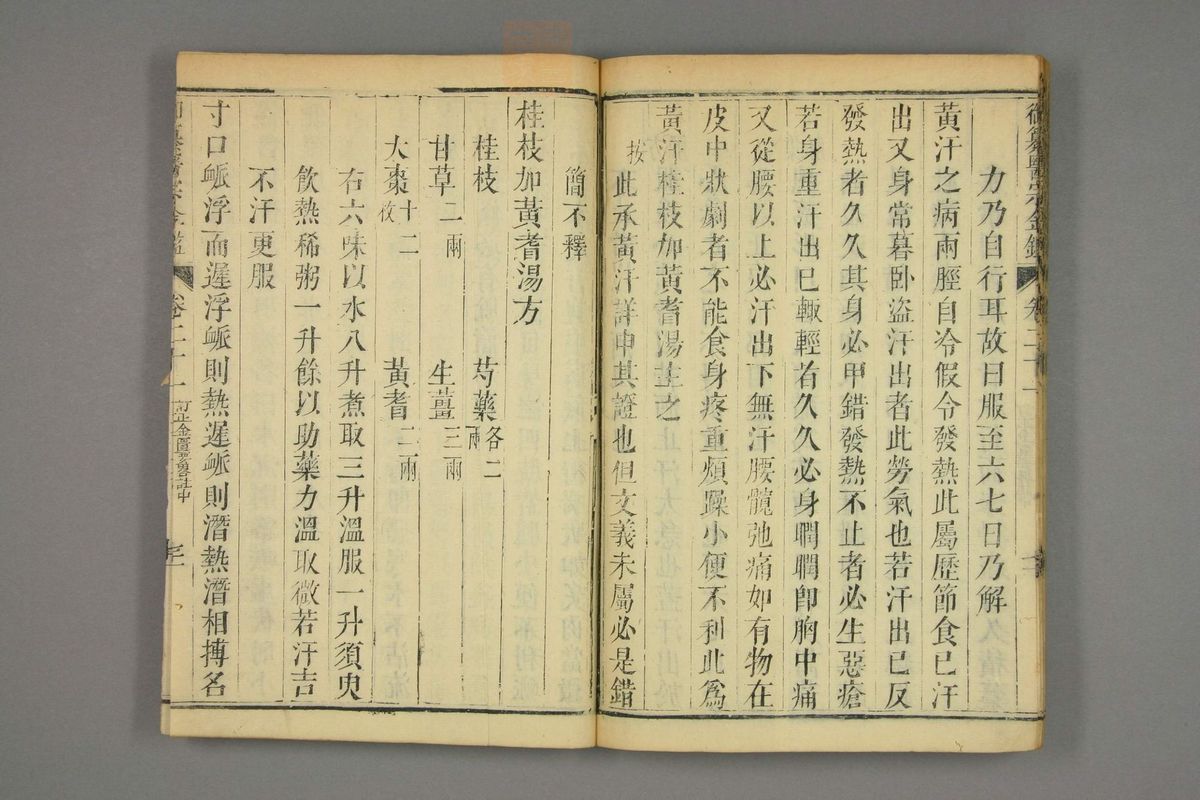 御纂醫宗金鑑 卷二十一
力乃自行耳故曰服至六七日乃解
黃汗之病兩脛自冷假令發熱此屬歷節食已汗
出又身常暮卧盜汗出者此勞氣也若汗出已反
發熱者久久其身必甲錯發熱不止者必生惡瘡
若身重汗出已輒輕者久久必身瞤瞤卽胸中痛
又從腰以上必汗出下無汗腰髖弛痛如有物在
皮中狀劇者不能食身疼重煩躁小便不利此爲
黃汗桂枝加黃耆湯主之
按此承黃汗詳申其證也但文義未屬必是錯
簡不釋
桂枝加黃耆湯方
桂枝 芍藥各二兩
甘草二兩 生薑三兩
大棗十二枚 黃耆二兩
右六味以水八升煮取三升溫服一升須臾
飲熱稀粥一升餘以助藥力溫取微若汗吉
不汗更服
寸口衇浮而遲浮衇則熱遲衇則潛熱潛相搏名
卷二十一 訂正金匱要畧註中 三